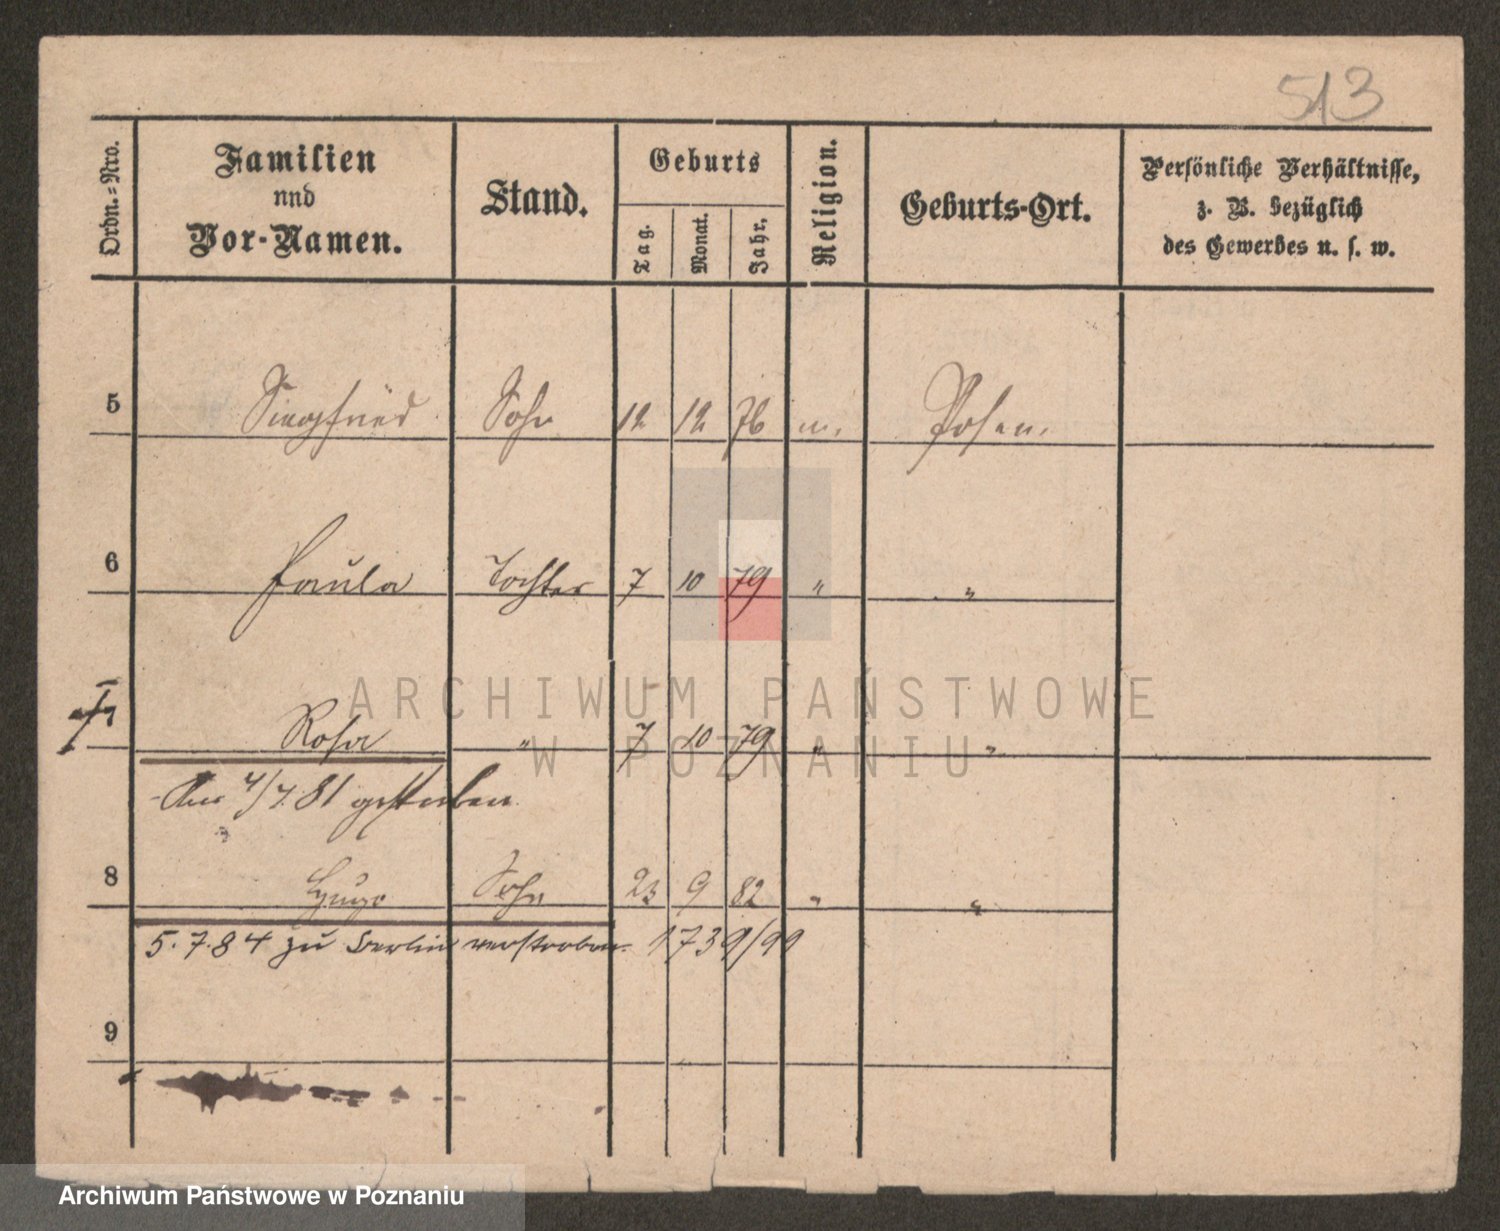 513
Ordn.=Nro.
Familien
und
Vor-Namen.
Stand.
Geburts
Tag.
Monat.
Jahr.
Religion.
Geburts-Ort.
Persönliche Verhältnisse,
z. B. bezüglich
des Gewerbes u. s. w.
5 Siegfried Sohn 12 12 76 m. Posen.
6 Paula Tochter 7 10 79 " "
7 Rosa " 7 10 79 " "
Am 4/7.81 gestorben.
8 Hugo Sohn 23 9 82 " "
5.7.84 zu Berlin verstorben. 1739/99
9
ARCHIWUM PAŃSTWOWE
W POZNANIU
Archiwum Państwowe w Poznaniu